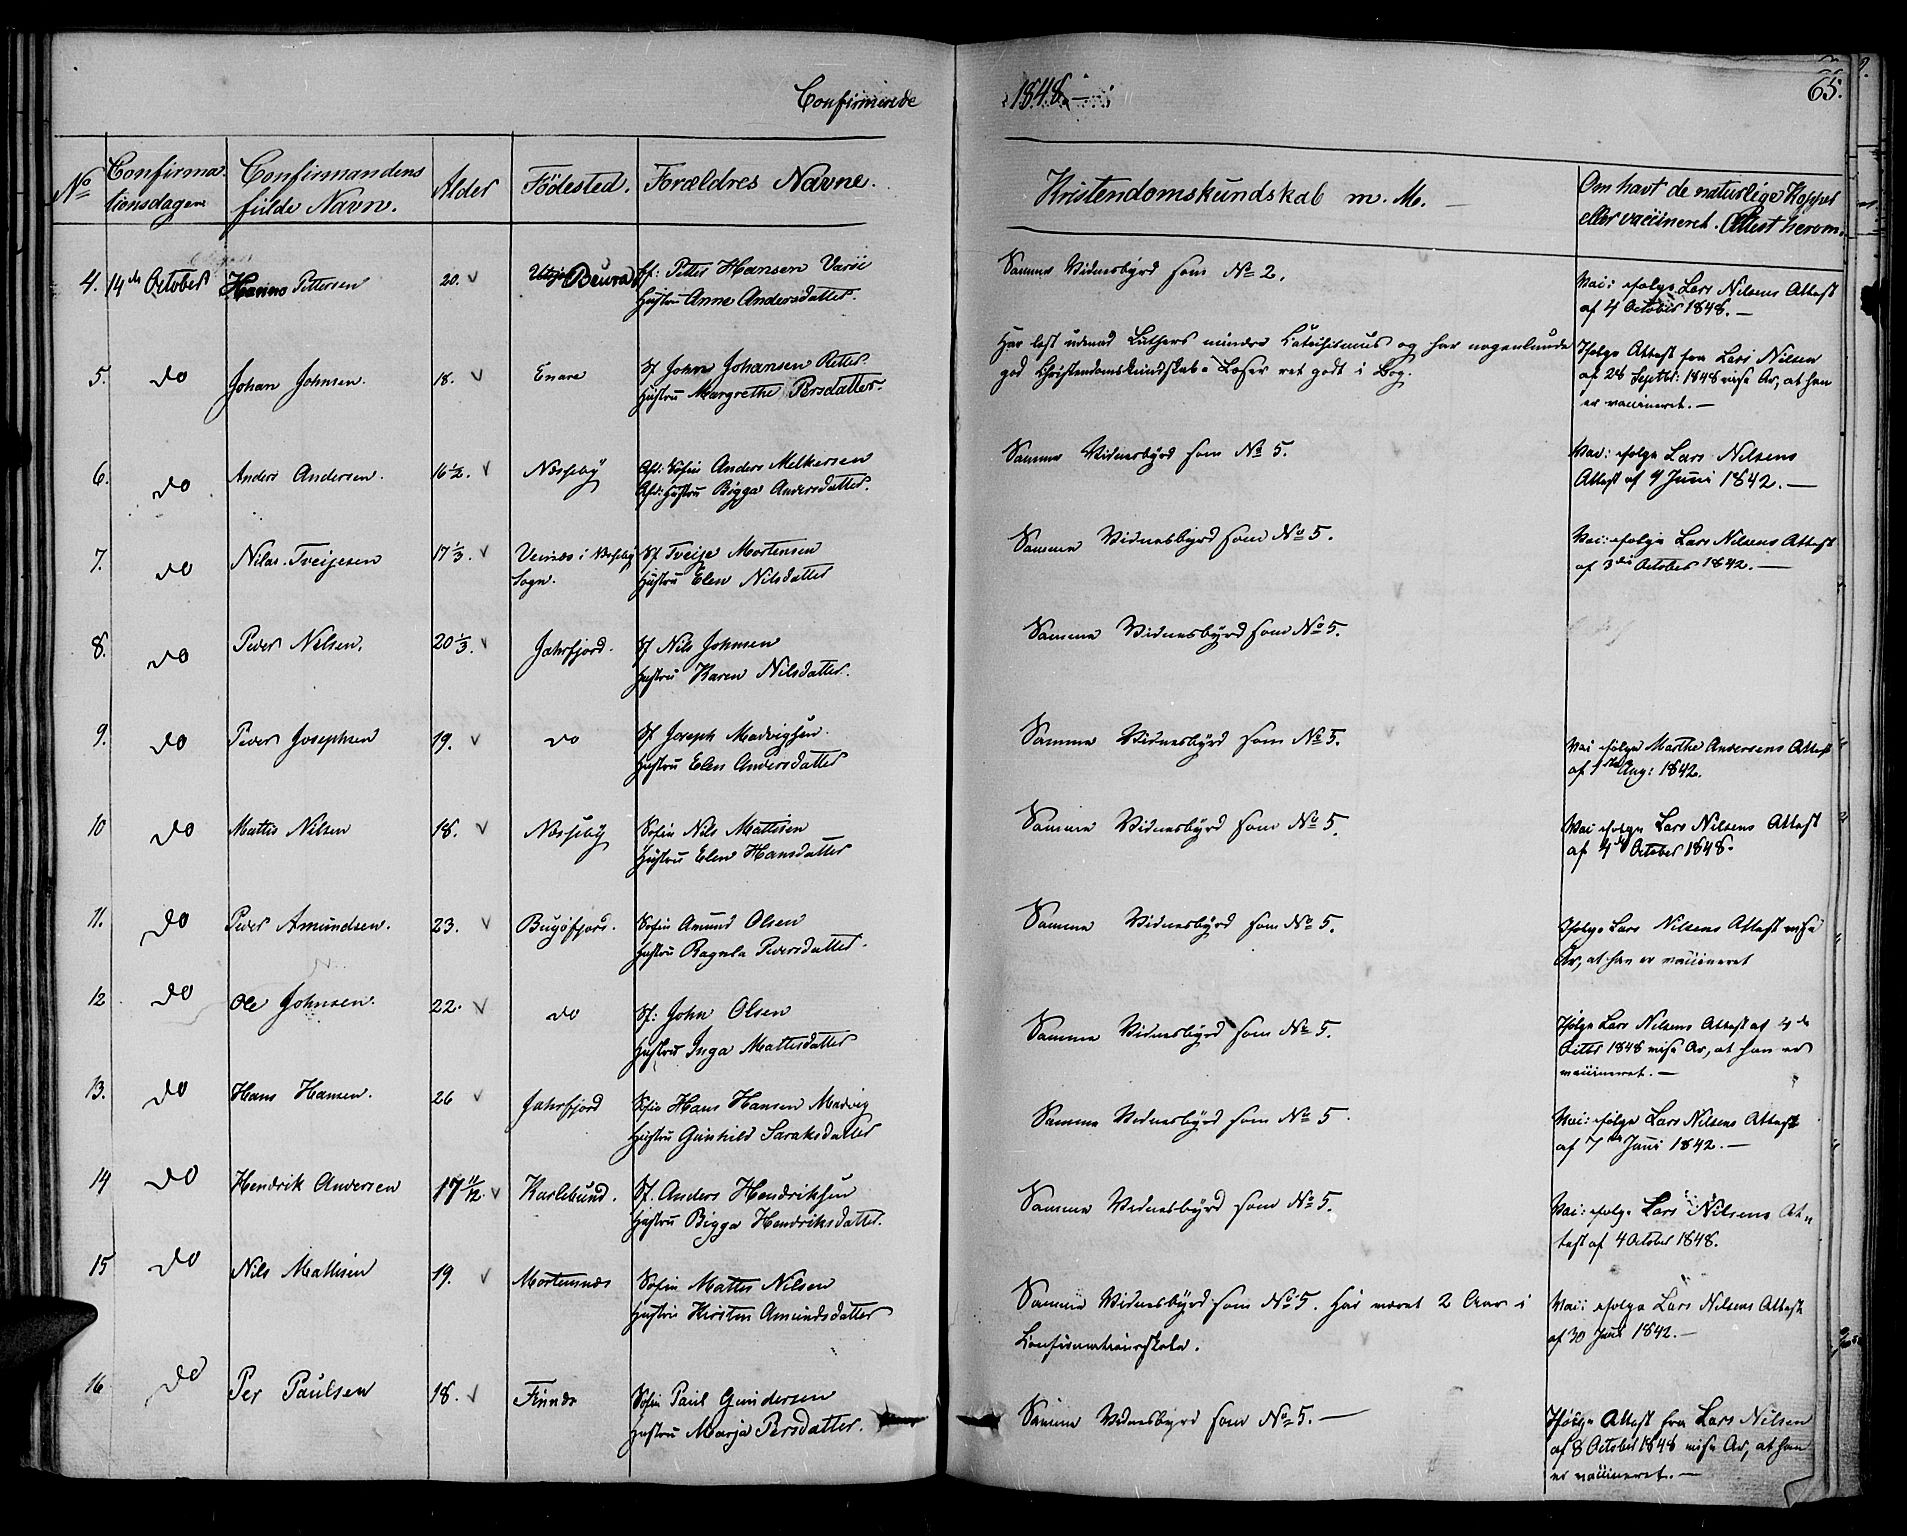 Confirmerede
1848.—
65.
No
Confirma-
tionsdagen
Confirmandens
fulde Navn.
Alder
Födested.
Forældres Navne.
Kristendomskundskab m. M. —
Om havt de naturlige Kopper
eller vaccineret. Attest herom.
4. 14de October Hanno Pettersen 20. Beura Sf: Petter Hansen Varsi
Hustru Anne Andersdatter.
Samme Vidnesbyrd som No 2.
Vac: ifølge Lars Nilsens Attest
af 4 October 1848. —
5. do Johan Johnsen. 18. Enare Sf John Johansen
Hustru Margrethe Persdatter.
Har læst udenad Luthers mindre Katechismus og har nogenlunde
god Christendomskundskab. Læser ret godt i Bog.
Ifølge Attest fra Lars Nilsen
af 28 Septbr: 1848 vise Ar, at han
er vaccineret. —
6. do. Anders Andersen. 16 1/2. Næsseby Afd: Søfin Anders Melkersen
Afd: Hustru Bigga Andersdatter.
Samme Vidnesbyrd som No 5.
Vac: ifølge Lars Nilsens
Attest af 9 Juni 1842. —
7. do Nilas Tveijesen 17 1/3. i Næsseby
Sogn. Sf. Tveije Mortensen
Hustru Elen Nilsdatter
Samme Vidnesbyrd som No 5.
Vac: ifølge Lars Nilsens Attest
af 3die October 1842. —
8. do Peder Nilsen. 20 1/3. Jahrfjord. Sf Nils Johnsen
Hustru Karen Nilsdatter.
Samme Vidnesbyrd som No 5.
9. do Peder Josephsen 19. do Sf Joseph Madvigsen.
Hustru Elen Andersdatter
Samme Vidnesbyrd som No 5.
Vac ifølge Marthe Andersens Attest
af 1ste Aug: 1842.
10 do Mattis Nilsen 18. Næsseby Søfin Nils Mattisen
Hustru Elen Hansdatter
Samme Vidnesbyrd som No 5.
Vac ifølge Lars Nilsens Attest
af 4de October 1848.
11. do Peder Amundsen. 23. Bugöfjord. Søfin Amund Olsen
Hustru Ragnla Pedersdatter.
Samme Vidnesbyrd som No 5.
Ifølge Lars Nilsens Attest vise
Ar, at han er vaccineret
12 do Ole Johnsen. 22. do Sf: John Olsen
Hustru Inga Mattisdatter
Samme Vidnesbyrd som No 5.
Ifølge Lars Nilsens Attest af 4de
Octbr 1848 vise Ar, at han er
vaccineret. —
13. do Hans Hansen. 26 Jahrfjord Søfin Hans Hansen Madvig
Hustru Gunhild Saraksdatter
Samme Vidnesbyrd som No 5
Vac: ifølge Lars Nilsens Attest
af 7de Juni 1842. —
14 do Hendrik Andersen 17 11/12. Karlebund. Sf. Anders Hendriksen
Hustru Bigga Hendriksdatter.
Samme Vidnesbyrd som No 5.
Vac: ifølge Lars Nilsens At-
test af 4 October 1848.
15 do Nils Mattisen 19. Mortensnæs Søfin Mattis Nilsen
Hustru Kirsten Amundsdatter
Samme Vidnesbyrd som No 5. Har været 2 Aar i
Confirmationsskole.
Vac: ifølge Lars Nilsens Attest
af 30 Juni 1842. —
16 do Per Paulsen 18. Finnds Søfin Paul Gundersen
Hustru Marja Persdatter.
Samme Vidnesbyrd som No 5. —
Ifølge Attest fra Lars Nilsen
af 8 October 1848 vise Ar, at han
er vaccineret. —